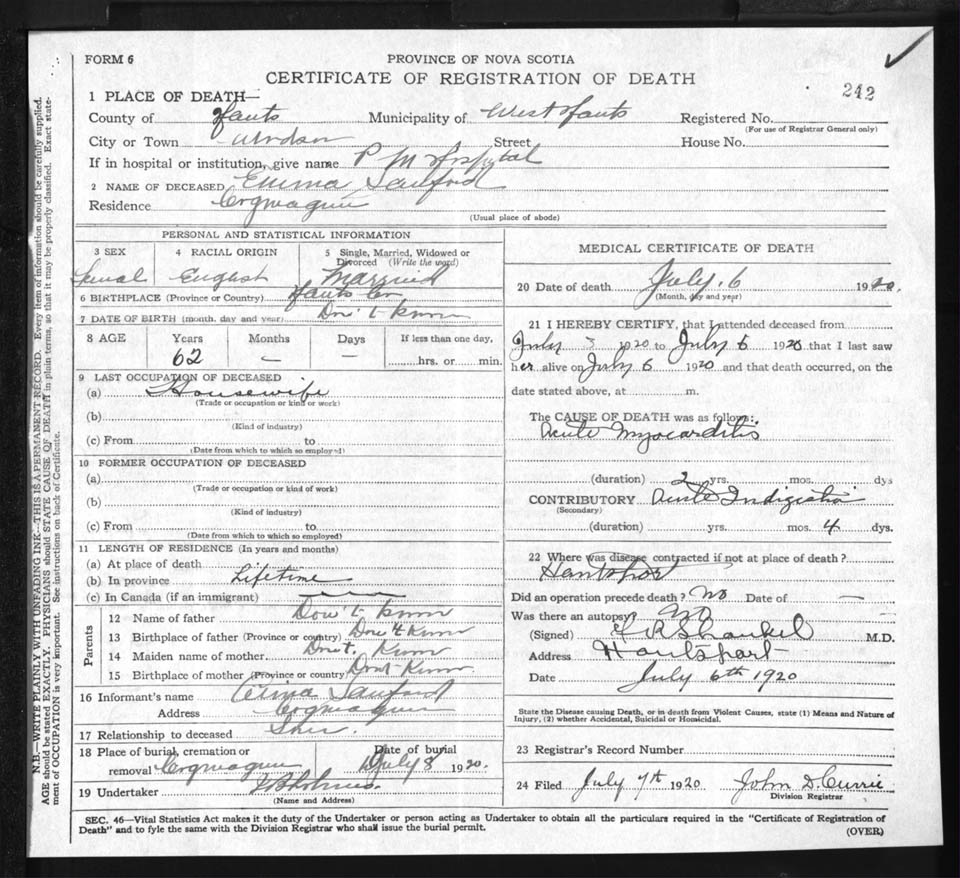 FORM 6
PROVINCE OF NOVA SCOTIA
CERTIFICATE OF REGISTRATION OF DEATH
242
1 PLACE OF DEATH—
County of Hants Municipality of West Hants Registered No.
(For use of Registrar General only)
City or Town Windsor Street House No.
If in hospital or institution, give name P M Hospital
2 NAME OF DECEASED Emma Sanford
Residence
(Usual place of abode)
PERSONAL AND STATISTICAL INFORMATION
3 SEX 4 RACIAL ORIGIN 5 Single, Married, Widowed or Divorced (Write the word)
English Married
6 BIRTHPLACE (Province or Country) Hants Co
7 DATE OF BIRTH (month, day and year) Don't know
8 AGE Years Months Days If less than one day,
62 — — hrs. or min.
9 LAST OCCUPATION OF DECEASED
(a) Housewife
(Trade or occupation or kind or work)
(b)
(Kind of industry)
(c) From to
(Date from which to which so employed)
10 FORMER OCCUPATION OF DECEASED
(a)
(Trade or occupation or kind of work)
(b)
(Kind of industry)
(c) From to
(Date from which to which so employed)
11 LENGTH OF RESIDENCE (In years and months)
(a) At place of death
(b) In province Lifetime
(c) In Canada (if an immigrant)
Parents
12 Name of father Don't know
13 Birthplace of father (Province or country) Don't Know
14 Maiden name of mother Don't Know
15 Birthplace of mother (Province or country) Don't Know
16 Informant's name Sanford
Address
17 Relationship to deceased
18 Place of burial, cremation or removal Date of burial July 8 1920.
19 Undertaker
(Name and Address)
MEDICAL CERTIFICATE OF DEATH
20 Date of death July. 6 1920.
(Month, day and year)
21 I HEREBY CERTIFY, that I attended deceased from
July 5 1920 to July 6 1920 that I last saw
her alive on July 6 1920 and that death occurred, on the
date stated above, at m.
The CAUSE OF DEATH was as follows:
Acute Myocarditis
(duration) 2 yrs. mos. dys
CONTRIBUTORY Acute Indigestion
(Secondary)
(duration) yrs. mos. 4 dys.
22 Where was disease contracted if not at place of death?
Hantsport
Did an operation precede death? No Date of —
Was there an autopsy? No
(Signed) Shankel M.D.
Address Hantsport
Date July 6th 1920
State the Disease causing Death, or in death from Violent Causes, state (1) Means and Nature of
Injury, (2) whether Accidental, Suicidal or Homicidal.
23 Registrar's Record Number
24 Filed July 7th 1920 John D Currie
Division Registrar
SEC. 46—Vital Statistics Act makes it the duty of the Undertaker or person acting as Undertaker to obtain all the particulars required in the "Certificate of Registration of
Death" and to fyle the same with the Division Registrar who shall issue the burial permit.
(OVER)
N.B.—WRITE PLAINLY WITH UNFADING INK—THIS IS A PERMANENT RECORD. Every item of information should be carefully supplied.
AGE should be stated EXACTLY. PHYSICIANS should STATE CAUSE OF DEATH in plain terms, so that it may be properly classified. Exact state-
ment of OCCUPATION is very important. See instructions on back of Certificate.